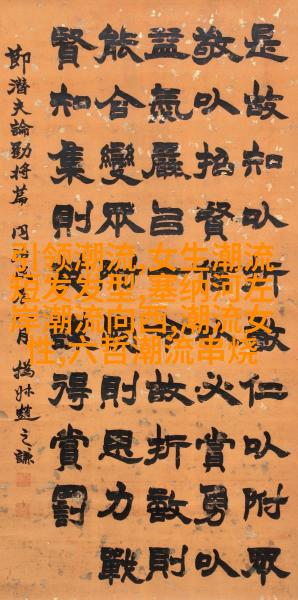 引领潮流,女生潮流
短发发型,塞纳河左
岸潮流向西,潮流女
性,六哲潮流串烧
是故知以所敵仁以附眾
敬以招賢必賞勇以
益氣嚴㠯令故折敵則
能合變眾則恩力戰
賢知集則得賞罰
節潛夫論勸將篇
同月
撝叔趙之謙